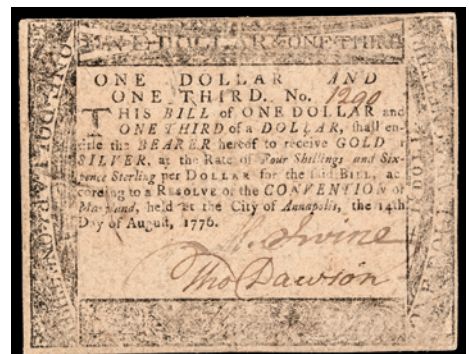 ONE DOLLAR & ONE THIRD
ONE DOLLAR AND
ONE THIRD. No. 1290
THIS BILL of ONE DOLLAR and
ONE THIRD of a DOLLAR, shall en-
title the BEARER hereof to receive GOLD
SILVER, at the Rate of Four Shillings and Six-
pence Sterling per DOLLAR for the said BILL, ac
cording to a RESOLVE of the CONVENTION of
Maryland, held at the City of Annapolis, the 14th
Day of August, 1776.
Irvine
Tho Dawson